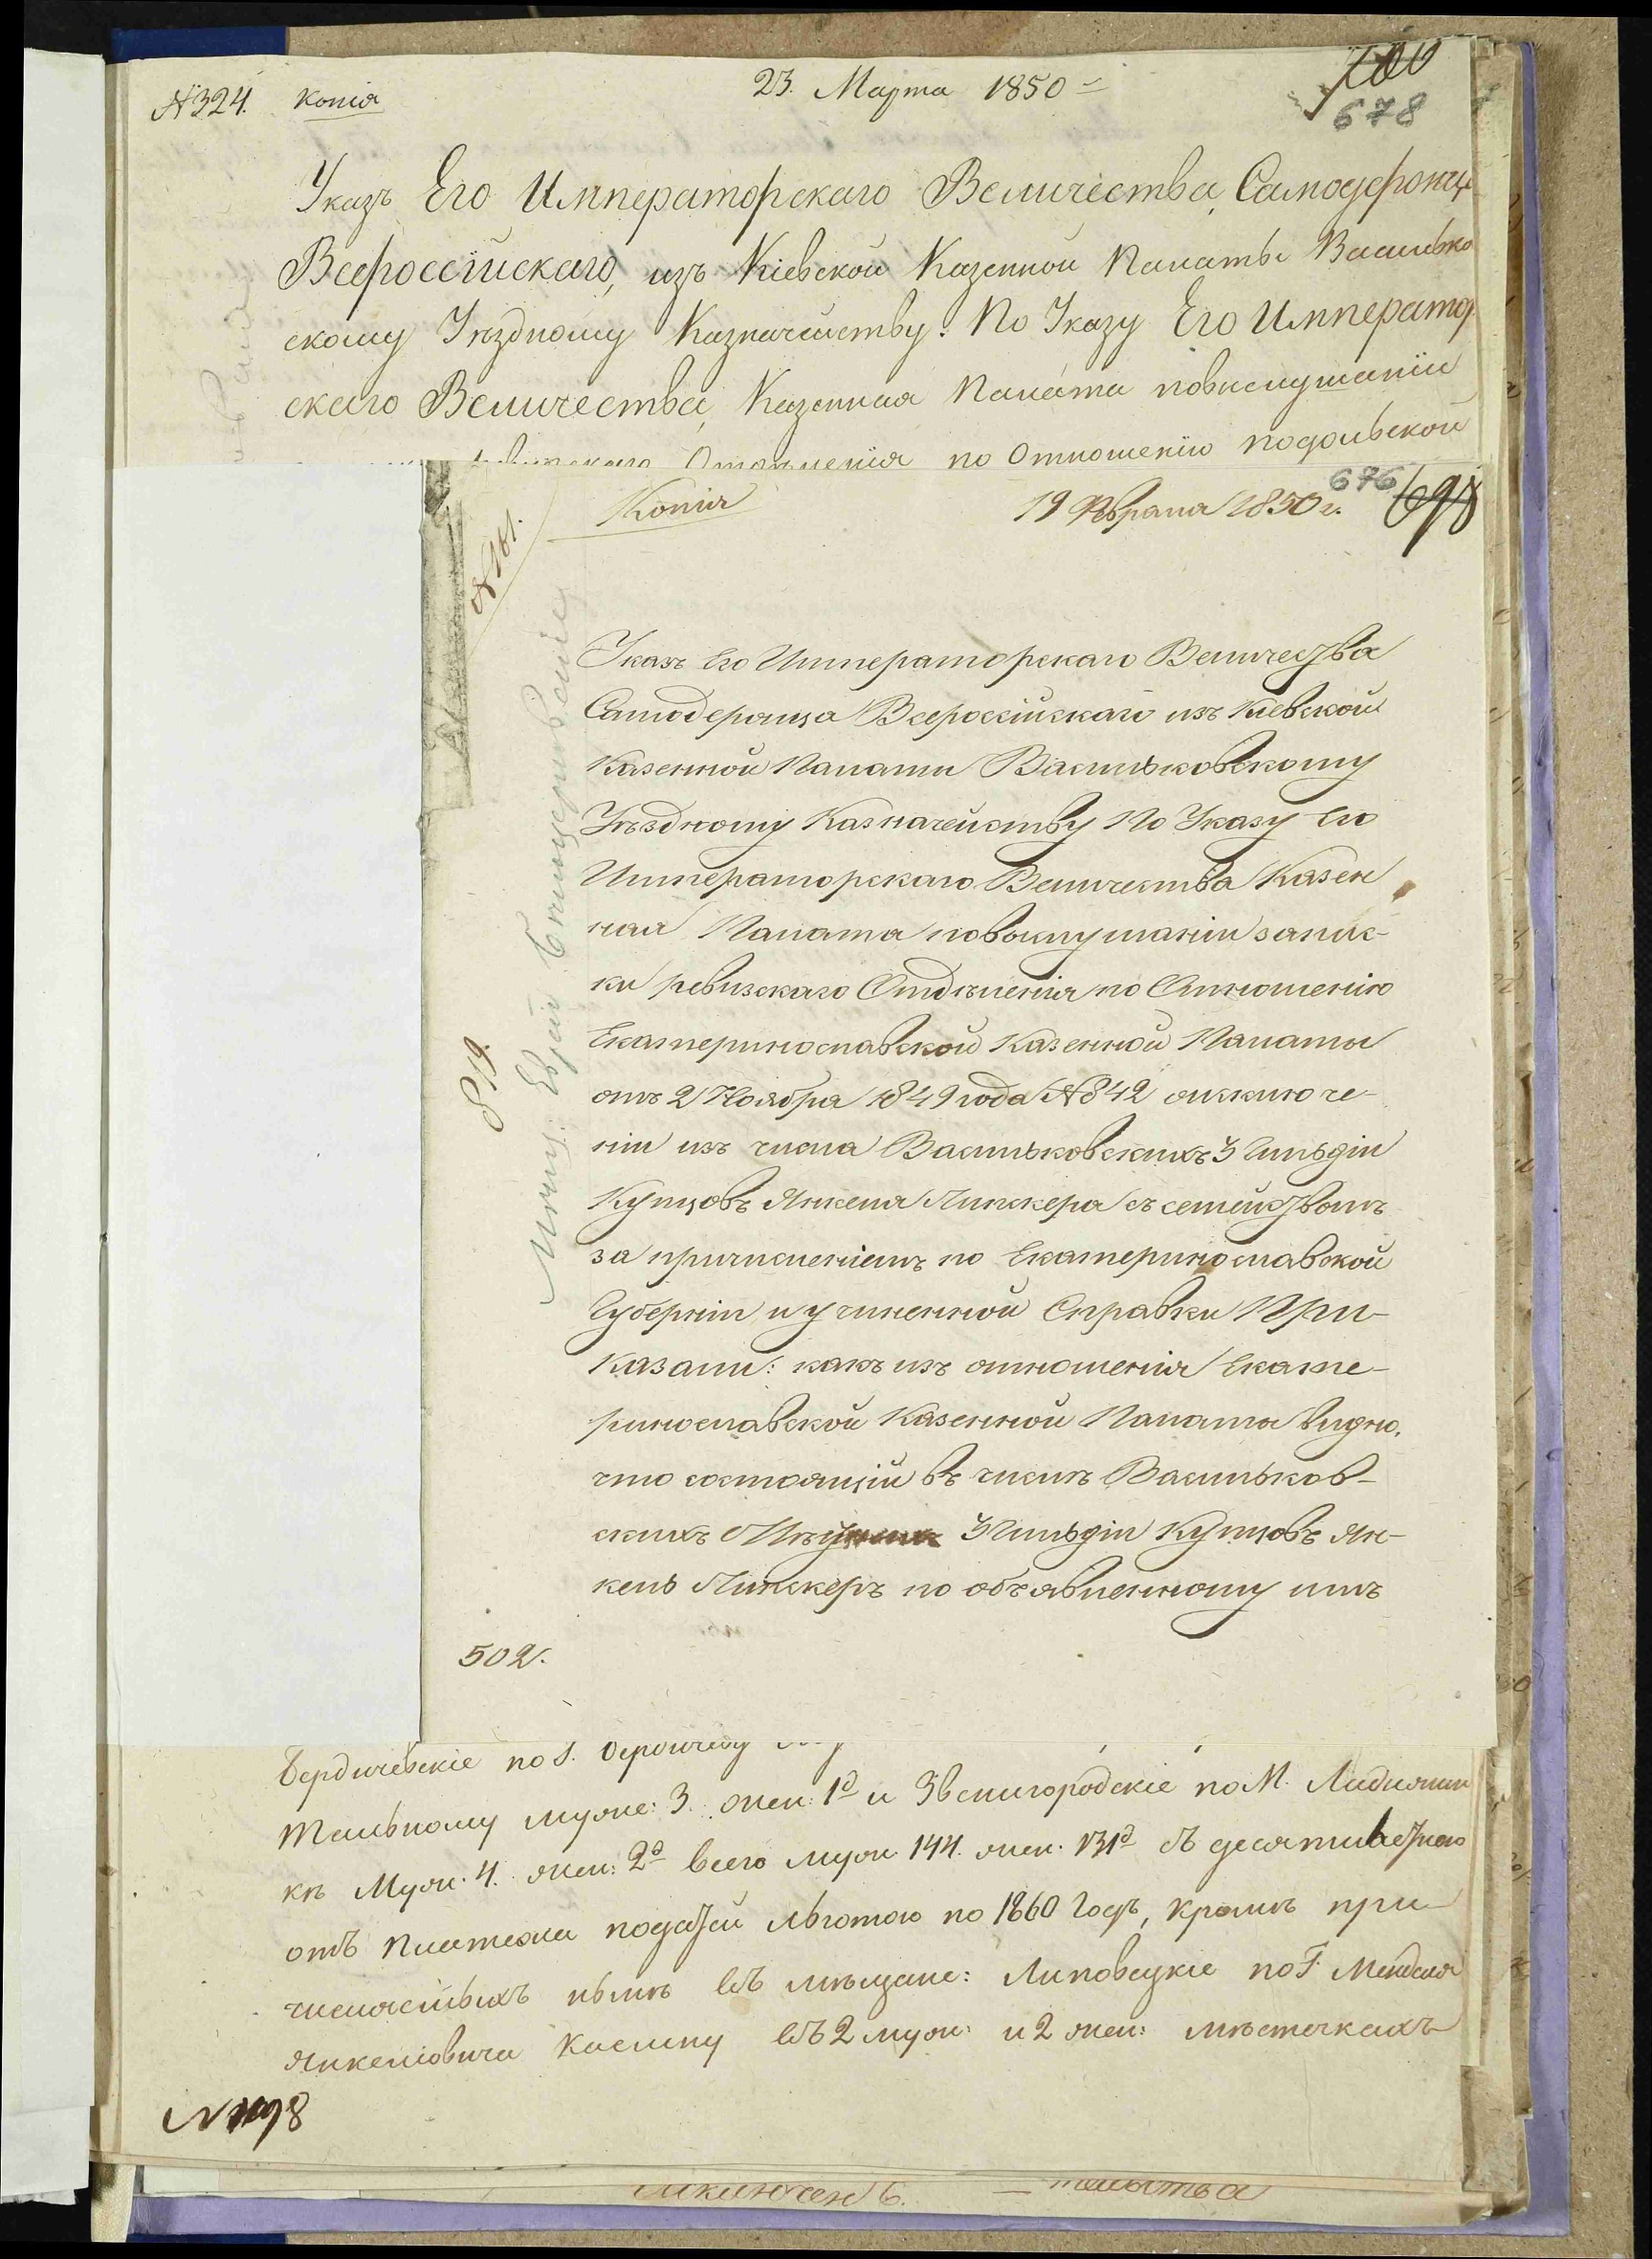 №324. Копія 23. Марта 1850
678
Указъ Его Императорскаго Величества, Самодержца
Всероссійскаго, изъ Кіевской Казенной Палаты Василько
скому Уѣздному Казначейству. По Указу Его Император
скаго Величества, Казенная Палата повыслушаніи
Отдѣленія по Отношенію подольской
676
Копія 19 Февраля 1850 г.
№161.
Указъ Его Императорскаго Величества
Самодержца Всероссійскаго изъ Кіевской
Казенной Палаты Васильковскому
Уѣздному Казначейству По Указу Его
Императорскаго Величества Казен
ная Палата повыслушаніи запис-
ки ревизскаго Отдѣленія по Отношенію
Екатеринославской Казенной Палаты
отъ 2 Ноября 1849 года №842 оисключе-
ніи изъ числа Васильковскихъ 3 Гильдіи
Купцовъ Янкеля Линскера съ семействомъ
за причисленіемъ по Екатеринославской
Губерніи и учиненной Справки При-
казали: какъ изъ отношенія Екате-
ринославской Казенной Палаты видно,
что состоящій въ числѣ Васильков-
скихъ 3 Гильдіи Купцовъ Ян-
кель Линскеръ по объявленному имъ
819.
502.
Бердичевскіе по
тельному муже: 3. жен: 1д и Звенигородскіе по М.
кѣ Муж. 4. жен: 2д всего муж. 144. жен. 131д съ десятилѣтнею
отъ платежа податей льготою по 1860 Годъ, кромѣ при
въ мѣщане: Липовецкіе по Г. Менделя
Янкеліовича въ 2 муж: и 2 жен: мѣстечкахъ